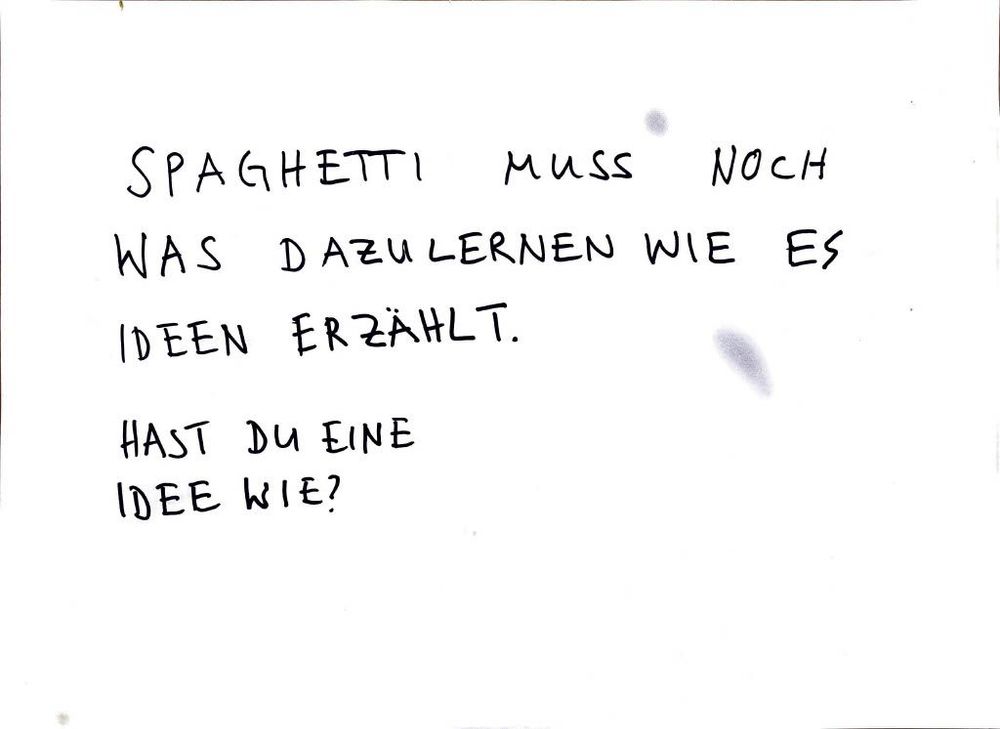 SPAGHETTI MUSS NOCH
WAS DAZULERNEN WIE ES
IDEEN ERZÄHLT.
HAST DU EINE
IDEE WIE?